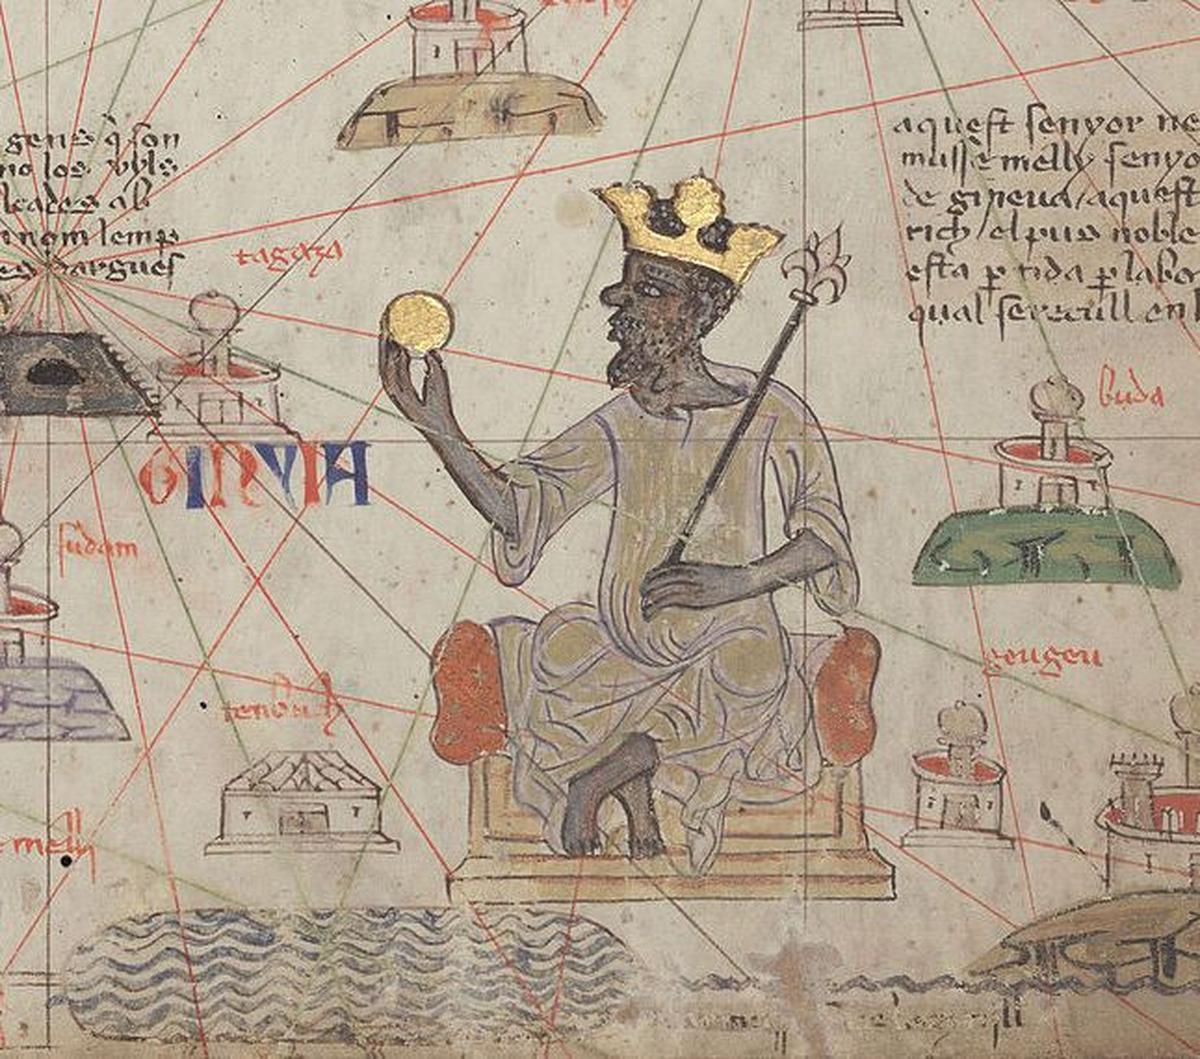 gens q̄ son
no los uyls
leades ab
nom lemp
es dargues
tagaza
aquest senyor ne
musse melly senyo
de gineua aquest
rich el pus noble
esta ꝑtida ꝑ labo
qual se recull en l
buda
GINYIA
sudam
geugeu
tenbuch
melly